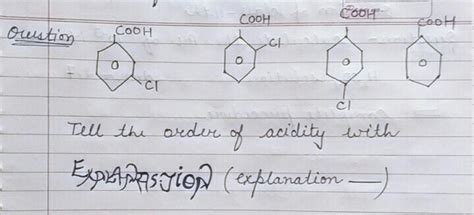 COOH COOH COOH COOH
Question
Cl
Cl
Cl
Tell the order of acidity with
(explanation —)